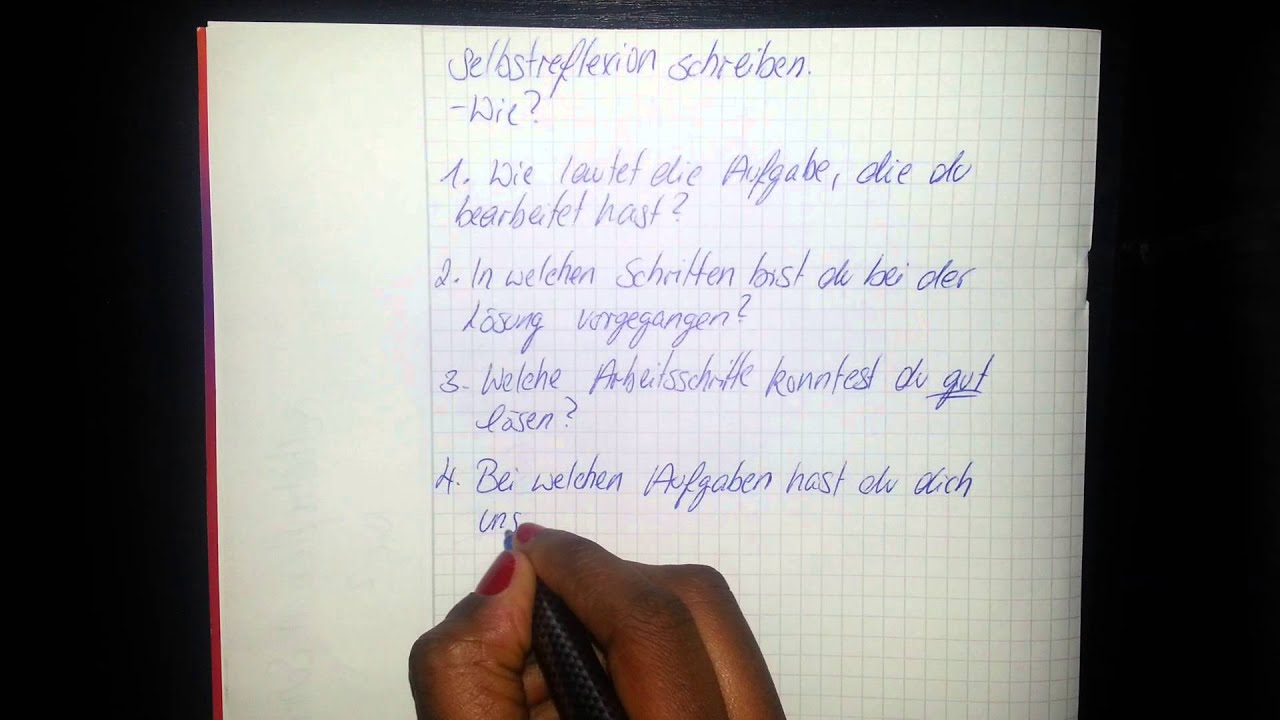 Selbstreflexion schreiben.
- Wie?
1. Wie lautet die Aufgabe, die du
bearbeitet hast?
2. In welchen Schritten bist du bei der
Lösung vorgegangen?
3. Welche Arbeitsschritte konntest du gut
lösen?
4. Bei welchen Aufgaben hast du dich
uns